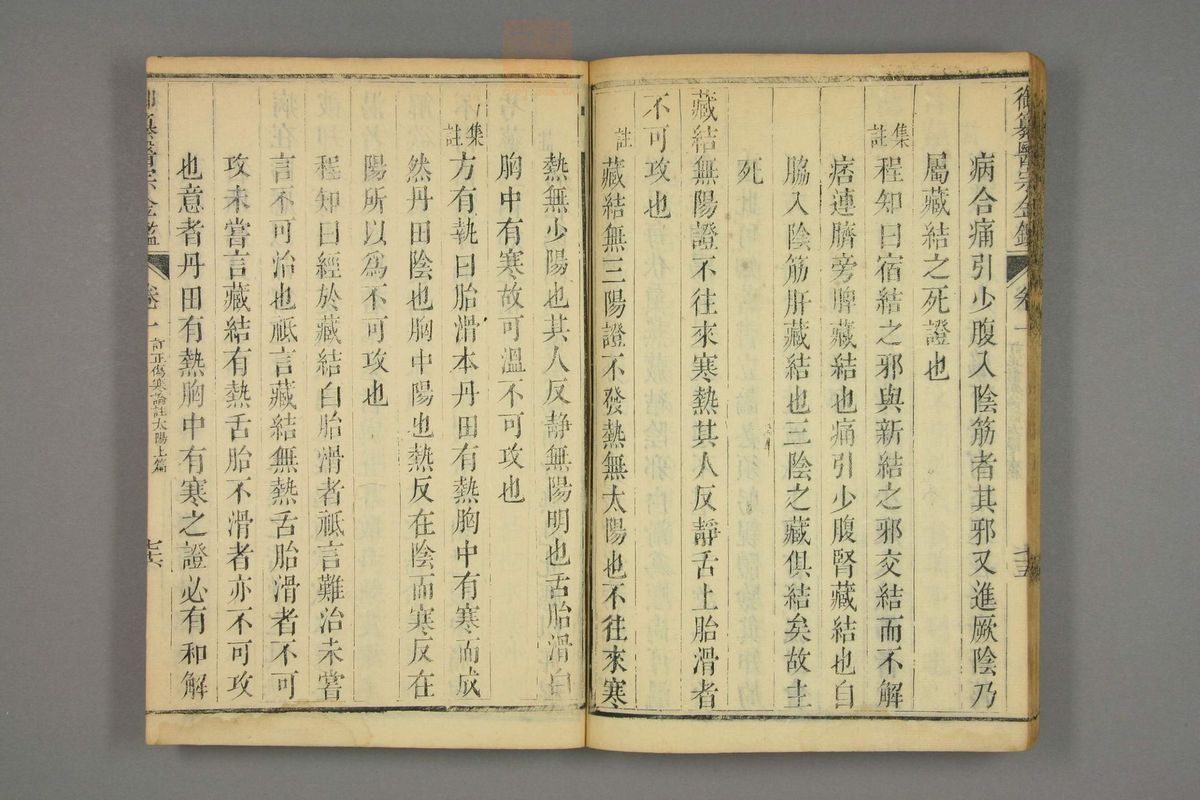 御纂醫宗金鑑 卷一
病合痛引少腹入陰筋者其邪又進厥陰乃
屬藏結之死證也
集註
程知曰宿結之邪與新結之邪交結而不解
痞連臍旁脾藏結也痛引少腹腎藏結也自
脇入陰筋肝藏結也三陰之藏俱結矣故主
死
藏結無陽證不往來寒熱其人反靜舌上胎滑者
不可攻也
註
藏結無三陽證不發熱無太陽也不往來寒
熱無少陽也其人反静無陽明也舌胎滑白
胸中有寒故可溫不可攻也
集註
方有執曰胎滑本丹田有熱胸中有寒而成
然丹田陰也胸中陽也熱反在陰而寒反在
陽所以為不可攻也
程知曰經於藏結白胎滑者祗言難治未嘗
言不可治也祗言藏結無熱舌胎滑者不可
攻未嘗言藏結有熱舌胎不滑者亦不可攻
也意者丹田有熱胸中有寒之證必有和解
御纂醫宗金鑑 卷一 訂正傷寒論註太陽上篇